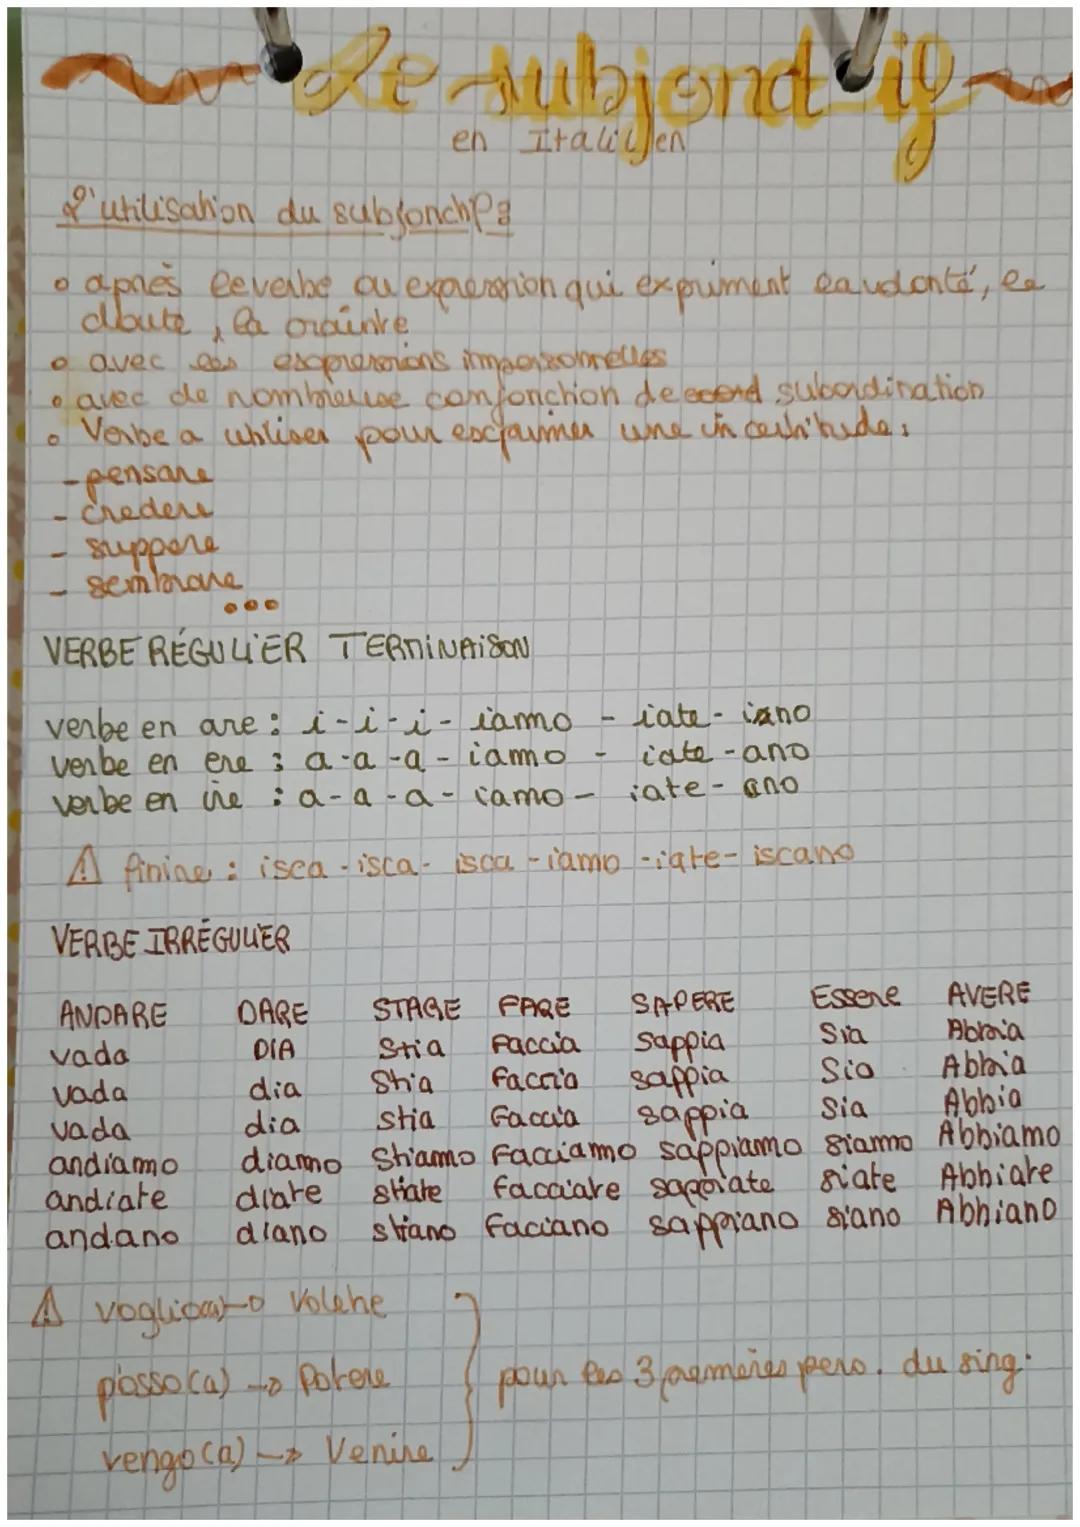 Le subjonctif
en Italien
L'utilisation du subjonctif :
• après le verbe ou expression qui expriment la volonté, le
doute, la crainte
• avec les expressions impersonnelles
• avec de nombreuse conjonction de subordination
• Verbe a utiliser pour exprimer une incertitude :
- pensare
- credere
- suppore
- sembrare
...
VERBE RÉGULIER TERMINAISON
verbe en are : i - i - i - iamo - iate - ino
verbe en ere : a - a - a - iamo - iate - ano
verbe en ire : a - a - a - iamo - iate - ano
⚠ finire : isca - isca - isca - iamo - iate - iscano
VERBE IRRÉGULIER
ANDARE DARE STARE FARE SAPERE Essere AVERE
vada DIA Stia Faccia Sappia Sia Abbia
vada dia Stia Faccia sappia Sia Abbia
vada dia stia Faccia sappia Sia Abbia
andiamo diamo Stiamo Facciamo sappiamo siamo Abbiamo
andiate diate stiate facciate sappiate siate Abbiate
andano diano stiano Faciano sappiano siano Abbiano
⚠ voglio(a) → Volere
posso(a) → Potere
vengo(a) → Venire
pour les 3 premières pers. du sing.